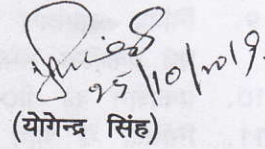 25/10/2019
(योगेन्द्र सिंह)